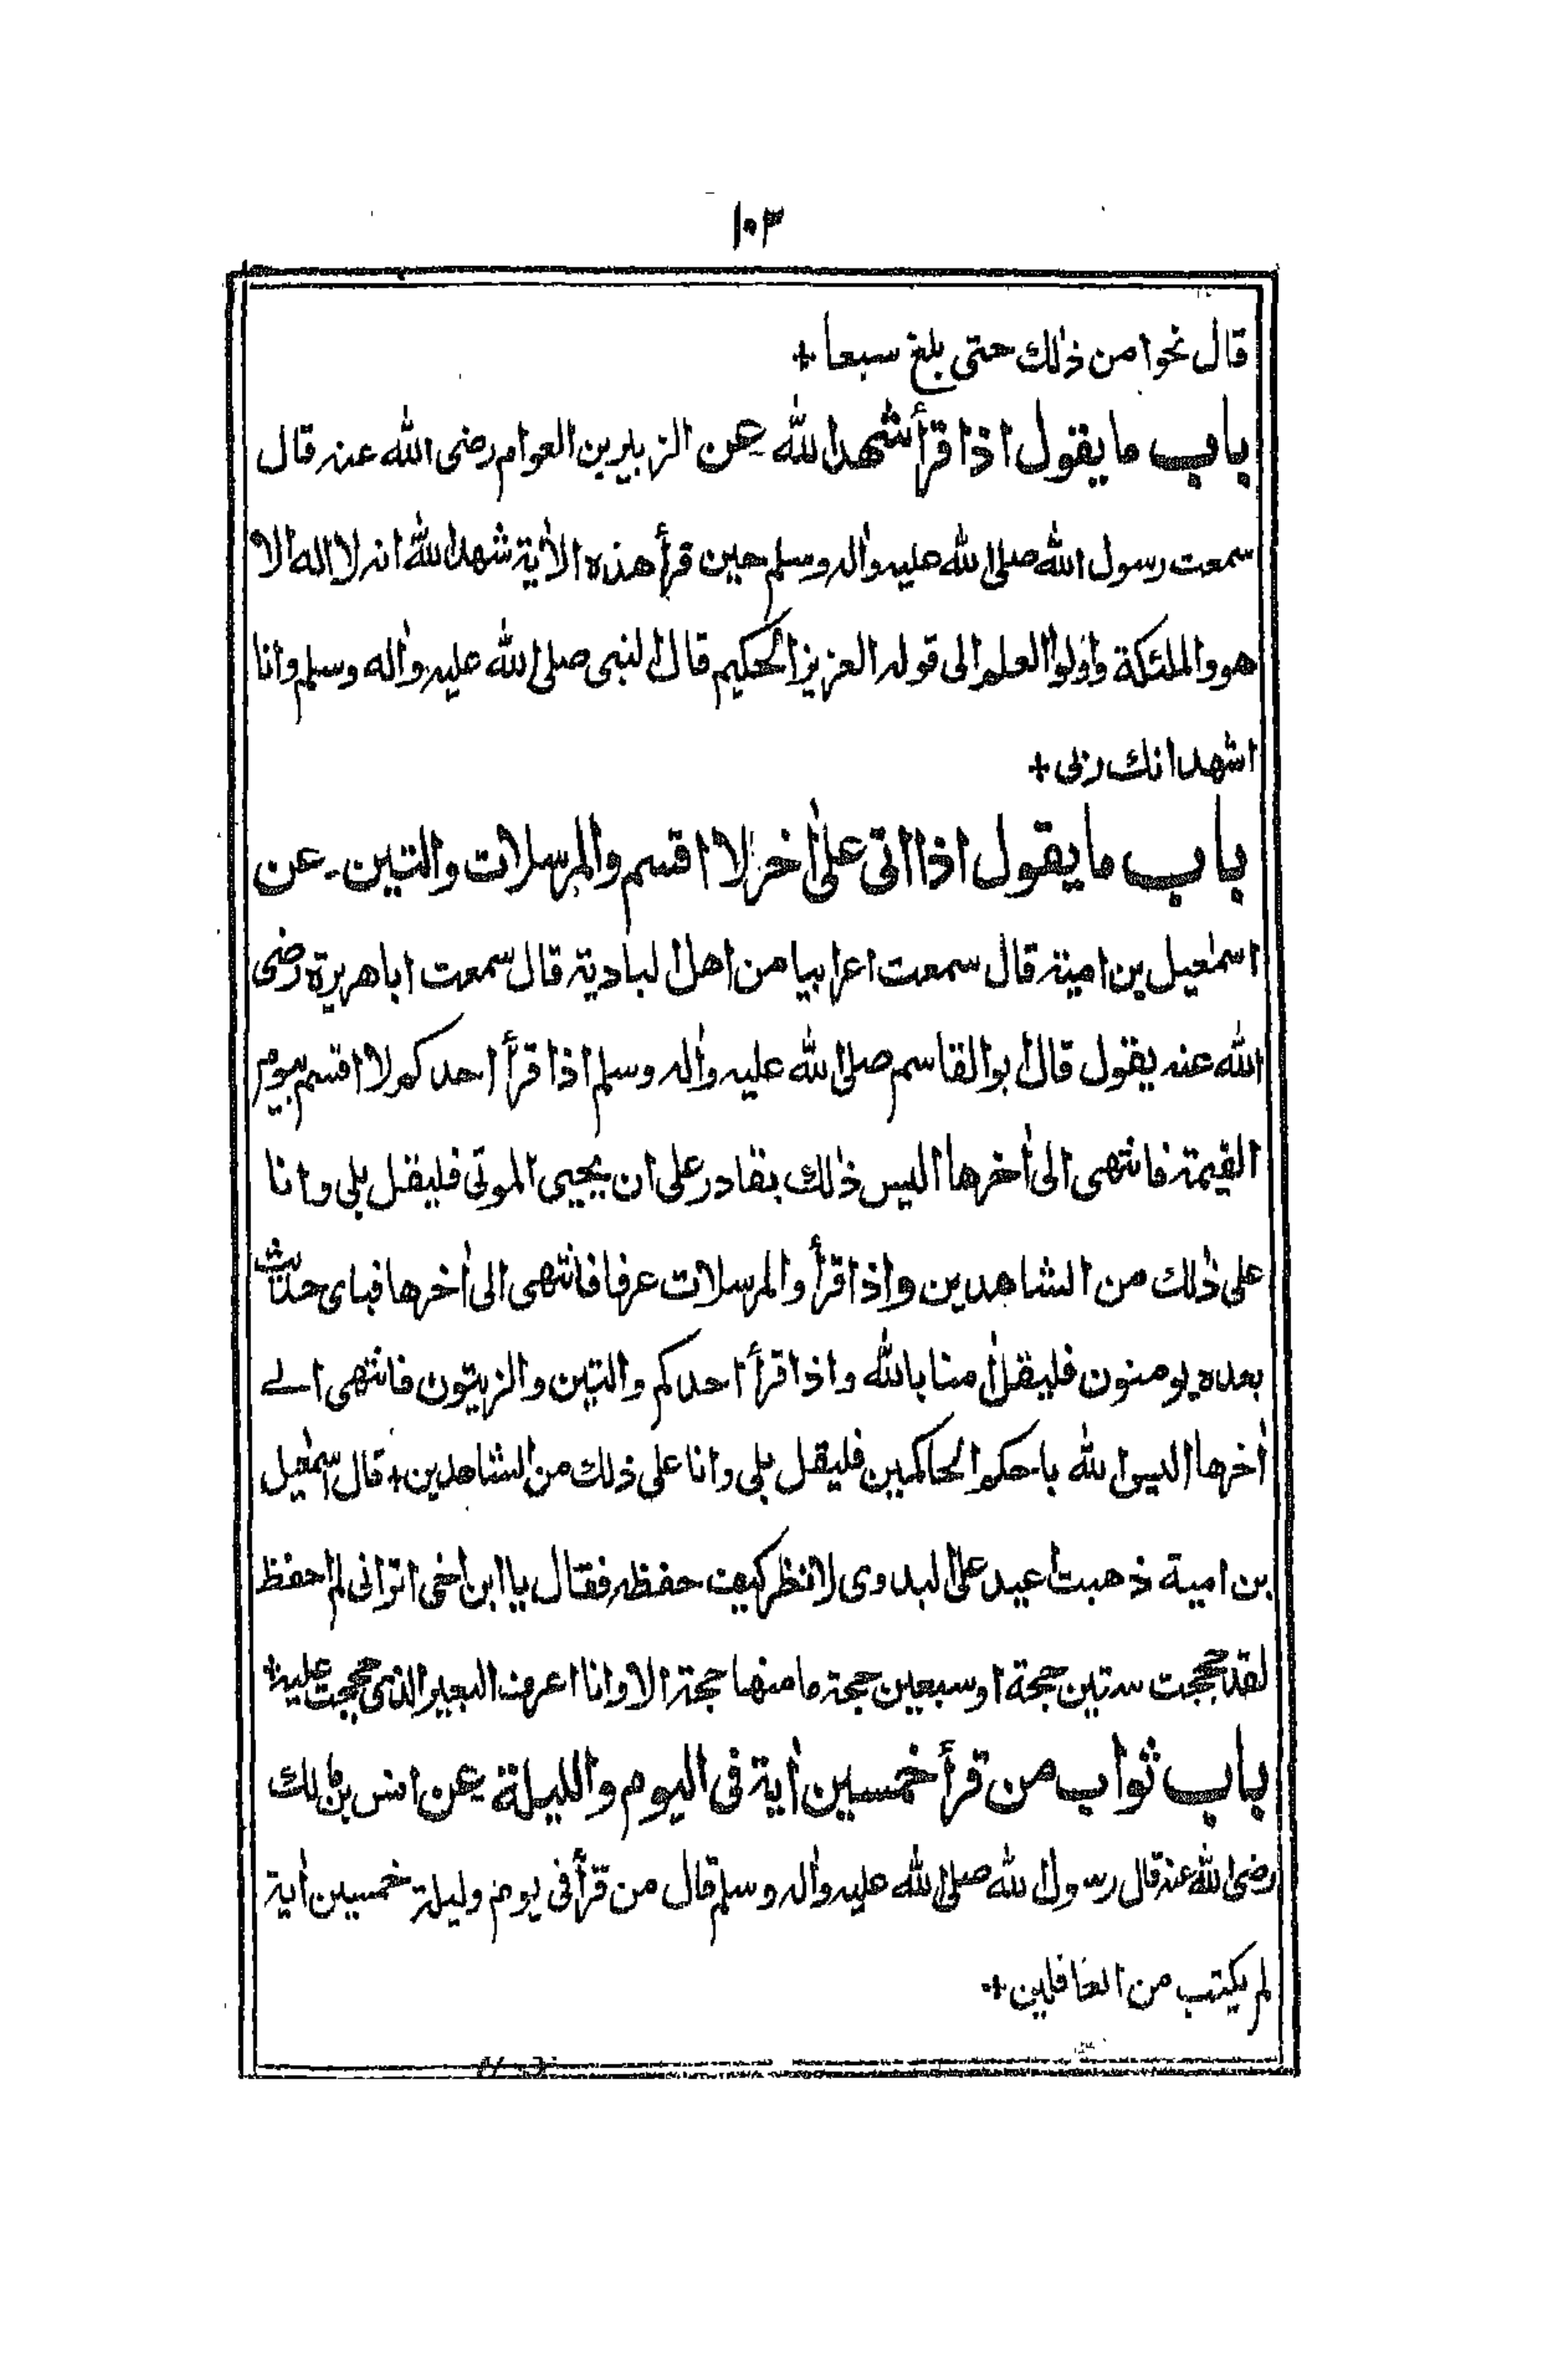 ١٠٣
قال نحوا من ذٰلك حتى بلغ سبعا +
باب ما يقول اذا قرأ شهد الله عن الزبير بن العوام رضى الله عنه قال
سمعت رسول الله صلى الله عليه واٰله وسلم حين قرأ هذه الاٰية شهد الله انه لا اله الا
هو والملئكة واولوا العلم الى قوله العزيز الحكيم قال النبى صلى الله عليه واٰله وسلم وانا
اشهد انك ربى +
باب ما يقول اذا اتى على اٰخر لا اقسم والمرسلات والتين ـ عن
اسمٰعيل بن امية قال سمعت اعرابيا من اهل البادية قال سمعت ابا هريرة رضى
الله عنه يقول قال ابو القاسم صلى الله عليه واٰله وسلم اذا قرأ احدكم لا اقسم بيوم
القيمة فانتهى الى اٰخرها اليس ذٰلك بقادر على ان يحيى الموتى فليقل بلى وانا
على ذٰلك من الشاهدين واذا قرأ والمرسلات عرفا فانتهى الى اٰخرها فباى حديث
بعده يومنون فليقل اٰمنا بالله واذا قرأ احدكم والتين والزيتون فانتهى الے
اٰخرها اليس الله باحكم الحاكمين فليقل بلى وانا على ذلك من الشاهدين + قال اسمٰعيل
بن امية ذهبت اعيد على البدوى لانظر كيف حفظه فقال يا ابن اخى اترانى لم احفظ
لقد حججت ستين حجة او سبعين حجة ما منها حجة الا وانا اعرف البعير الذى حججت عليه +
باب ثواب من قرأ خمسين اٰية فى اليوم والليلة عن انس بن مالك
رضى الله عنه قال رسول الله صلى الله عليه واٰله وسلم قال من قرأ فى يوم وليلة خمسين اٰية
لم يكتب من الغافلين +